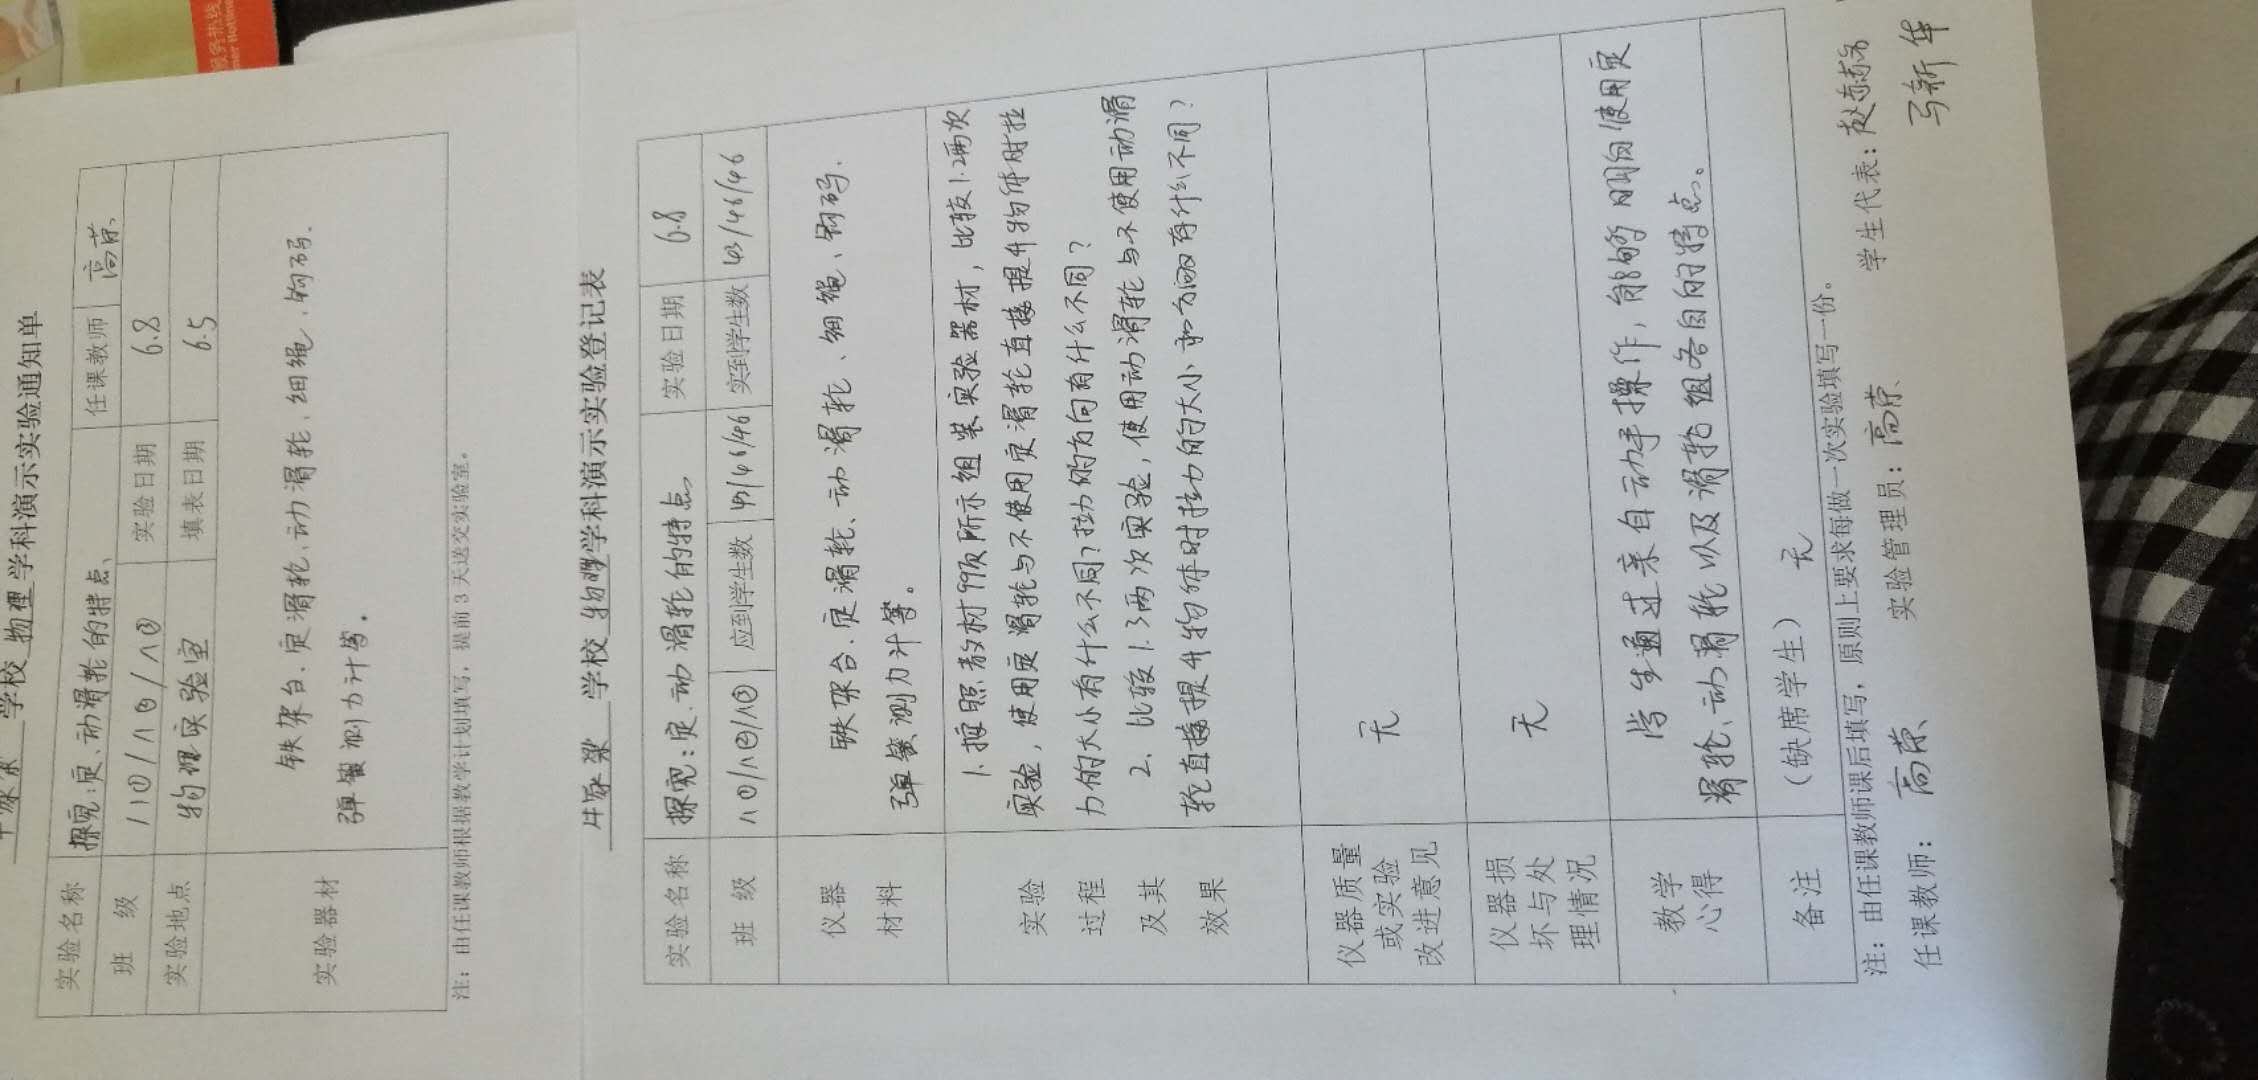 服务热线
学校 物理 学科演示实验通知单
实验名称 探究:定、动滑轮的特点、 任课教师 高荣、
班 级 实验日期 6.8
实验地点 物理实验室 填表日期 6.5
实验器材
铁架台、定滑轮、动滑轮、细绳、钩码、
弹簧测力计等。
注:由任课教师根据教学计划填写,提前 3 天送交实验室。
牛家梁 学校 物理 学科演示实验登记表
实验名称 探究:定、动滑轮的特点 实验日期 6.8
班 级 八①/八②/八③ 应到学生数 49/46/46 实到学生数 43/46/46
仪器
材料
铁架台、定滑轮、动滑轮、细绳、钩码、
弹簧测力计等。
实验
过程
及其
效果
1. 按照教材99页所示组装实验器材,比较1.2两次
实验,使用定滑轮与不使用定滑轮直接提升物体时拉
力的大小有什么不同?拉力的方向有什么不同?
2. 比较1.3两次实验,使用动滑轮与不使用动滑
轮直接提升物体时拉力的大小和方向有什么不同?
仪器质量
或实验
改进意见
无
仪器损
坏与处
理情况
无
教学
心得
学生通过亲自动手操作,能够明白使用定
滑轮、动滑轮以及滑轮组各自的特点。
备注 (缺席学生) 无
注:由任课教师课后填写,原则上要求每做一次实验填写一份。
任课教师: 高荣、 实验管理员: 高荣、 学生代表:
马新华